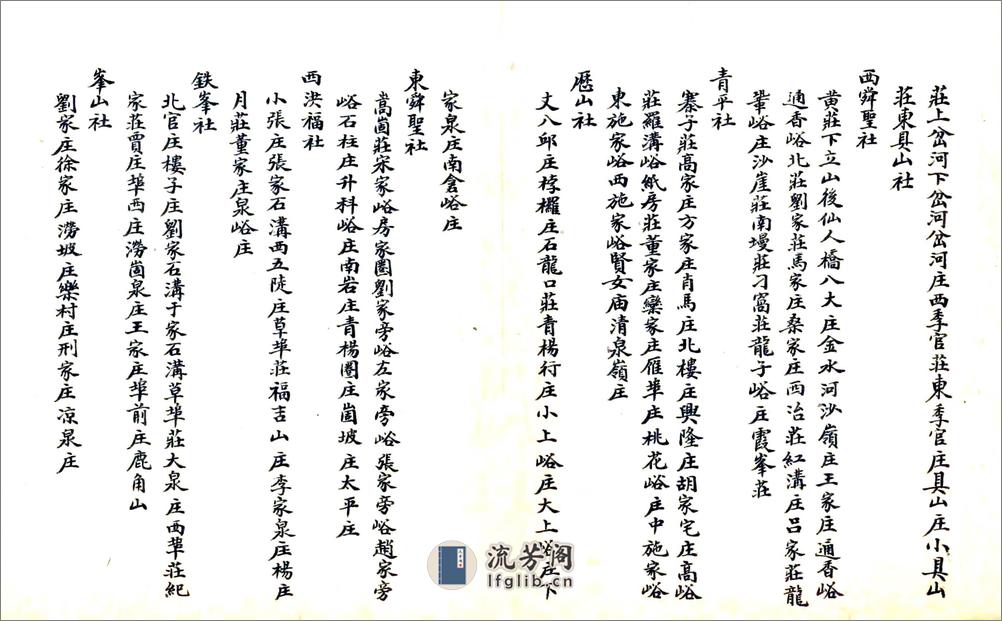 莊上岔河下岔河岔河庄西季官莊東季官庄具山庄小具山
莊東具山社
西舜聖社
黄莊下立山後仙人橋八大庄金水河沙嶺庄王家庄通香峪
通香峪北莊劉家莊馬家庄桑家庄西冶莊紅溝庄吕家莊龍
鞏峪庄沙崖莊南墁莊刁窩莊龍子峪庄霞峯莊
青平社
寨子莊高家庄方家庄肖馬庄北樓庄興隆庄胡家宅庄高峪
莊羅溝峪紙房莊董家庄欒家庄雁埠庄桃花峪庄中施家峪
東施家峪西施家峪賢女庙清泉嶺庄
歷山社
丈八邱庄桲欏庄石龍口莊青楊行庄小上峪庄大上峪庄下
家泉庄南倉峪庄
東舜聖社
嵩崮莊宋家峪房家圏劉家旁峪左家旁峪張家旁峪趙家旁
峪石柱庄升科峪庄南岩庄青楊圏庄崮坡庄太平庄
西洪福社
小張庄張家石溝西五陡庄草埠莊福吉山庄李家泉庄楊庄
月莊董家庄泉峪庄
鉄峯社
北官庄樓子庄劉家石溝于家石溝草埠莊大泉庄西埠莊紀
家莊賈庄埠西庄澇崮泉庄王家庄埠前庄鹿角山
峯山社
劉家庄徐家庄澇坡庄樂村庄刑家庄凉泉庄
流芳阁
lfglib.cn